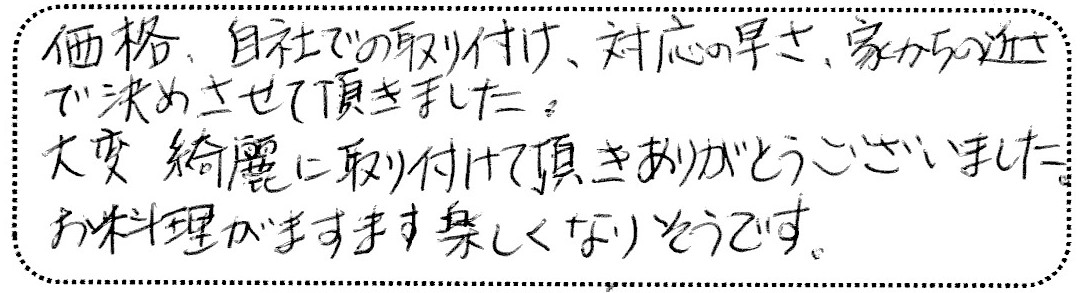 価格、自社での取り付け、対応の早さ、家からの近さ
で決めさせて頂きました。
大変 綺麗に取り付けて頂きありがとうございました。
お料理がますます楽しくなりそうです。